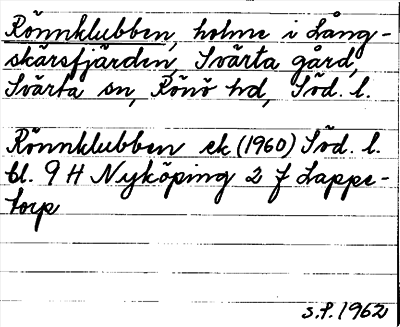 Rönnklubben, holme i Lång-
skärsfjärden, Svärta gård,
Svärta sn, Rönö hd, Söd. l.
Rönnklubben ek (1960) Söd. l.
bl. 9 H Nyköping 2 f Lappe-
torp
S.P. 1962